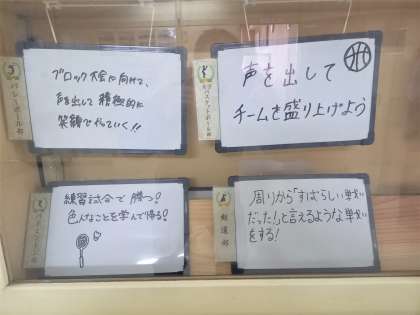 バレーボール部
ブロック大会に向けて、
声を出して積極的に
笑顔でやっていく!!
バスケットボール部
声を出して
チームを盛り上げよう
バドミントン部
練習試合で勝つ!
色んなことを学んで帰る!
剣道部
周りから「すばらしい戦い
だった!」と言えるような戦い
をする!